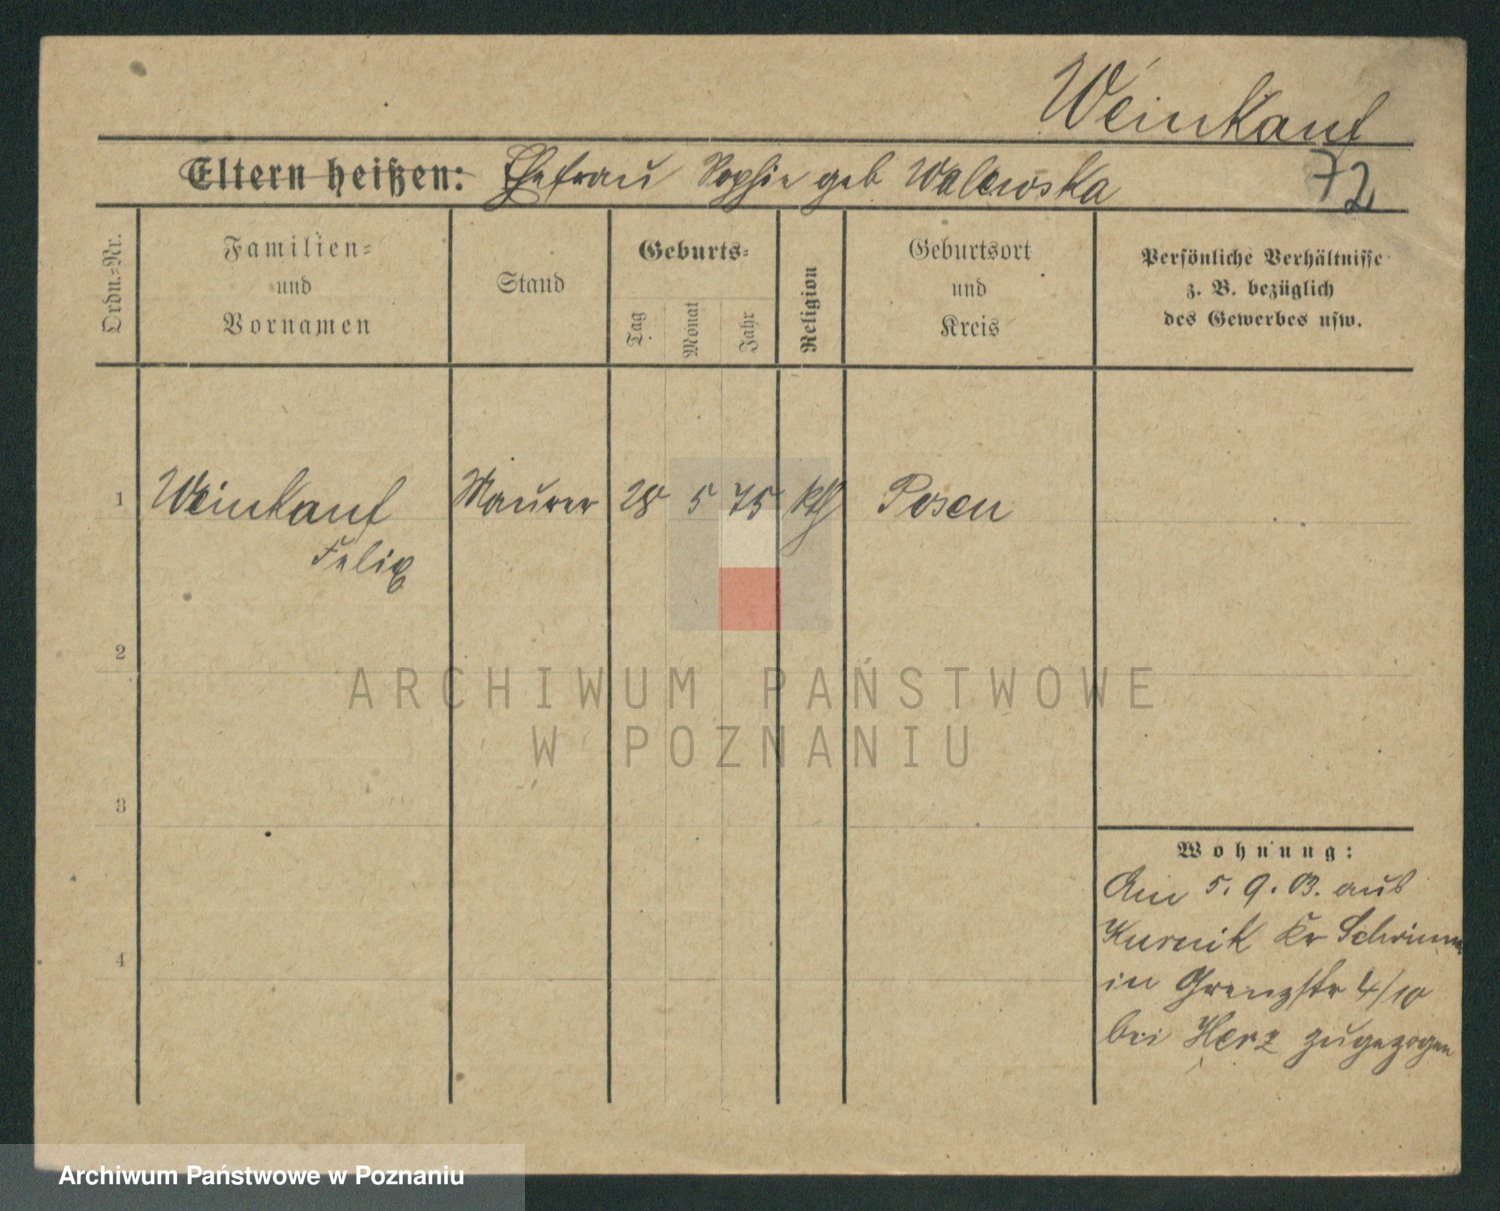 Weinkauf
Eltern heißen: Ehefrau Sophie geb Walewska
72
Ordn.=Nr.
Familien=
und
Vornamen
Stand
Geburts=
Tag
Monat
Jahr
Religion
Geburtsort
und
Kreis
Persönliche Verhältnisse
z. B. bezüglich
des Gewerbes usw.
1 Weinkauf Maurer 28 5 75 kth Posen
Felix
2
3
4
Wohnung:
Am 5. 9. 03. aus
Kurnik Kr Schrimm
in Grenzstr 4/10
bei Herz zugezogen
ARCHIWUM PAŃSTWOWE
W POZNANIU
Archiwum Państwowe w Poznaniu